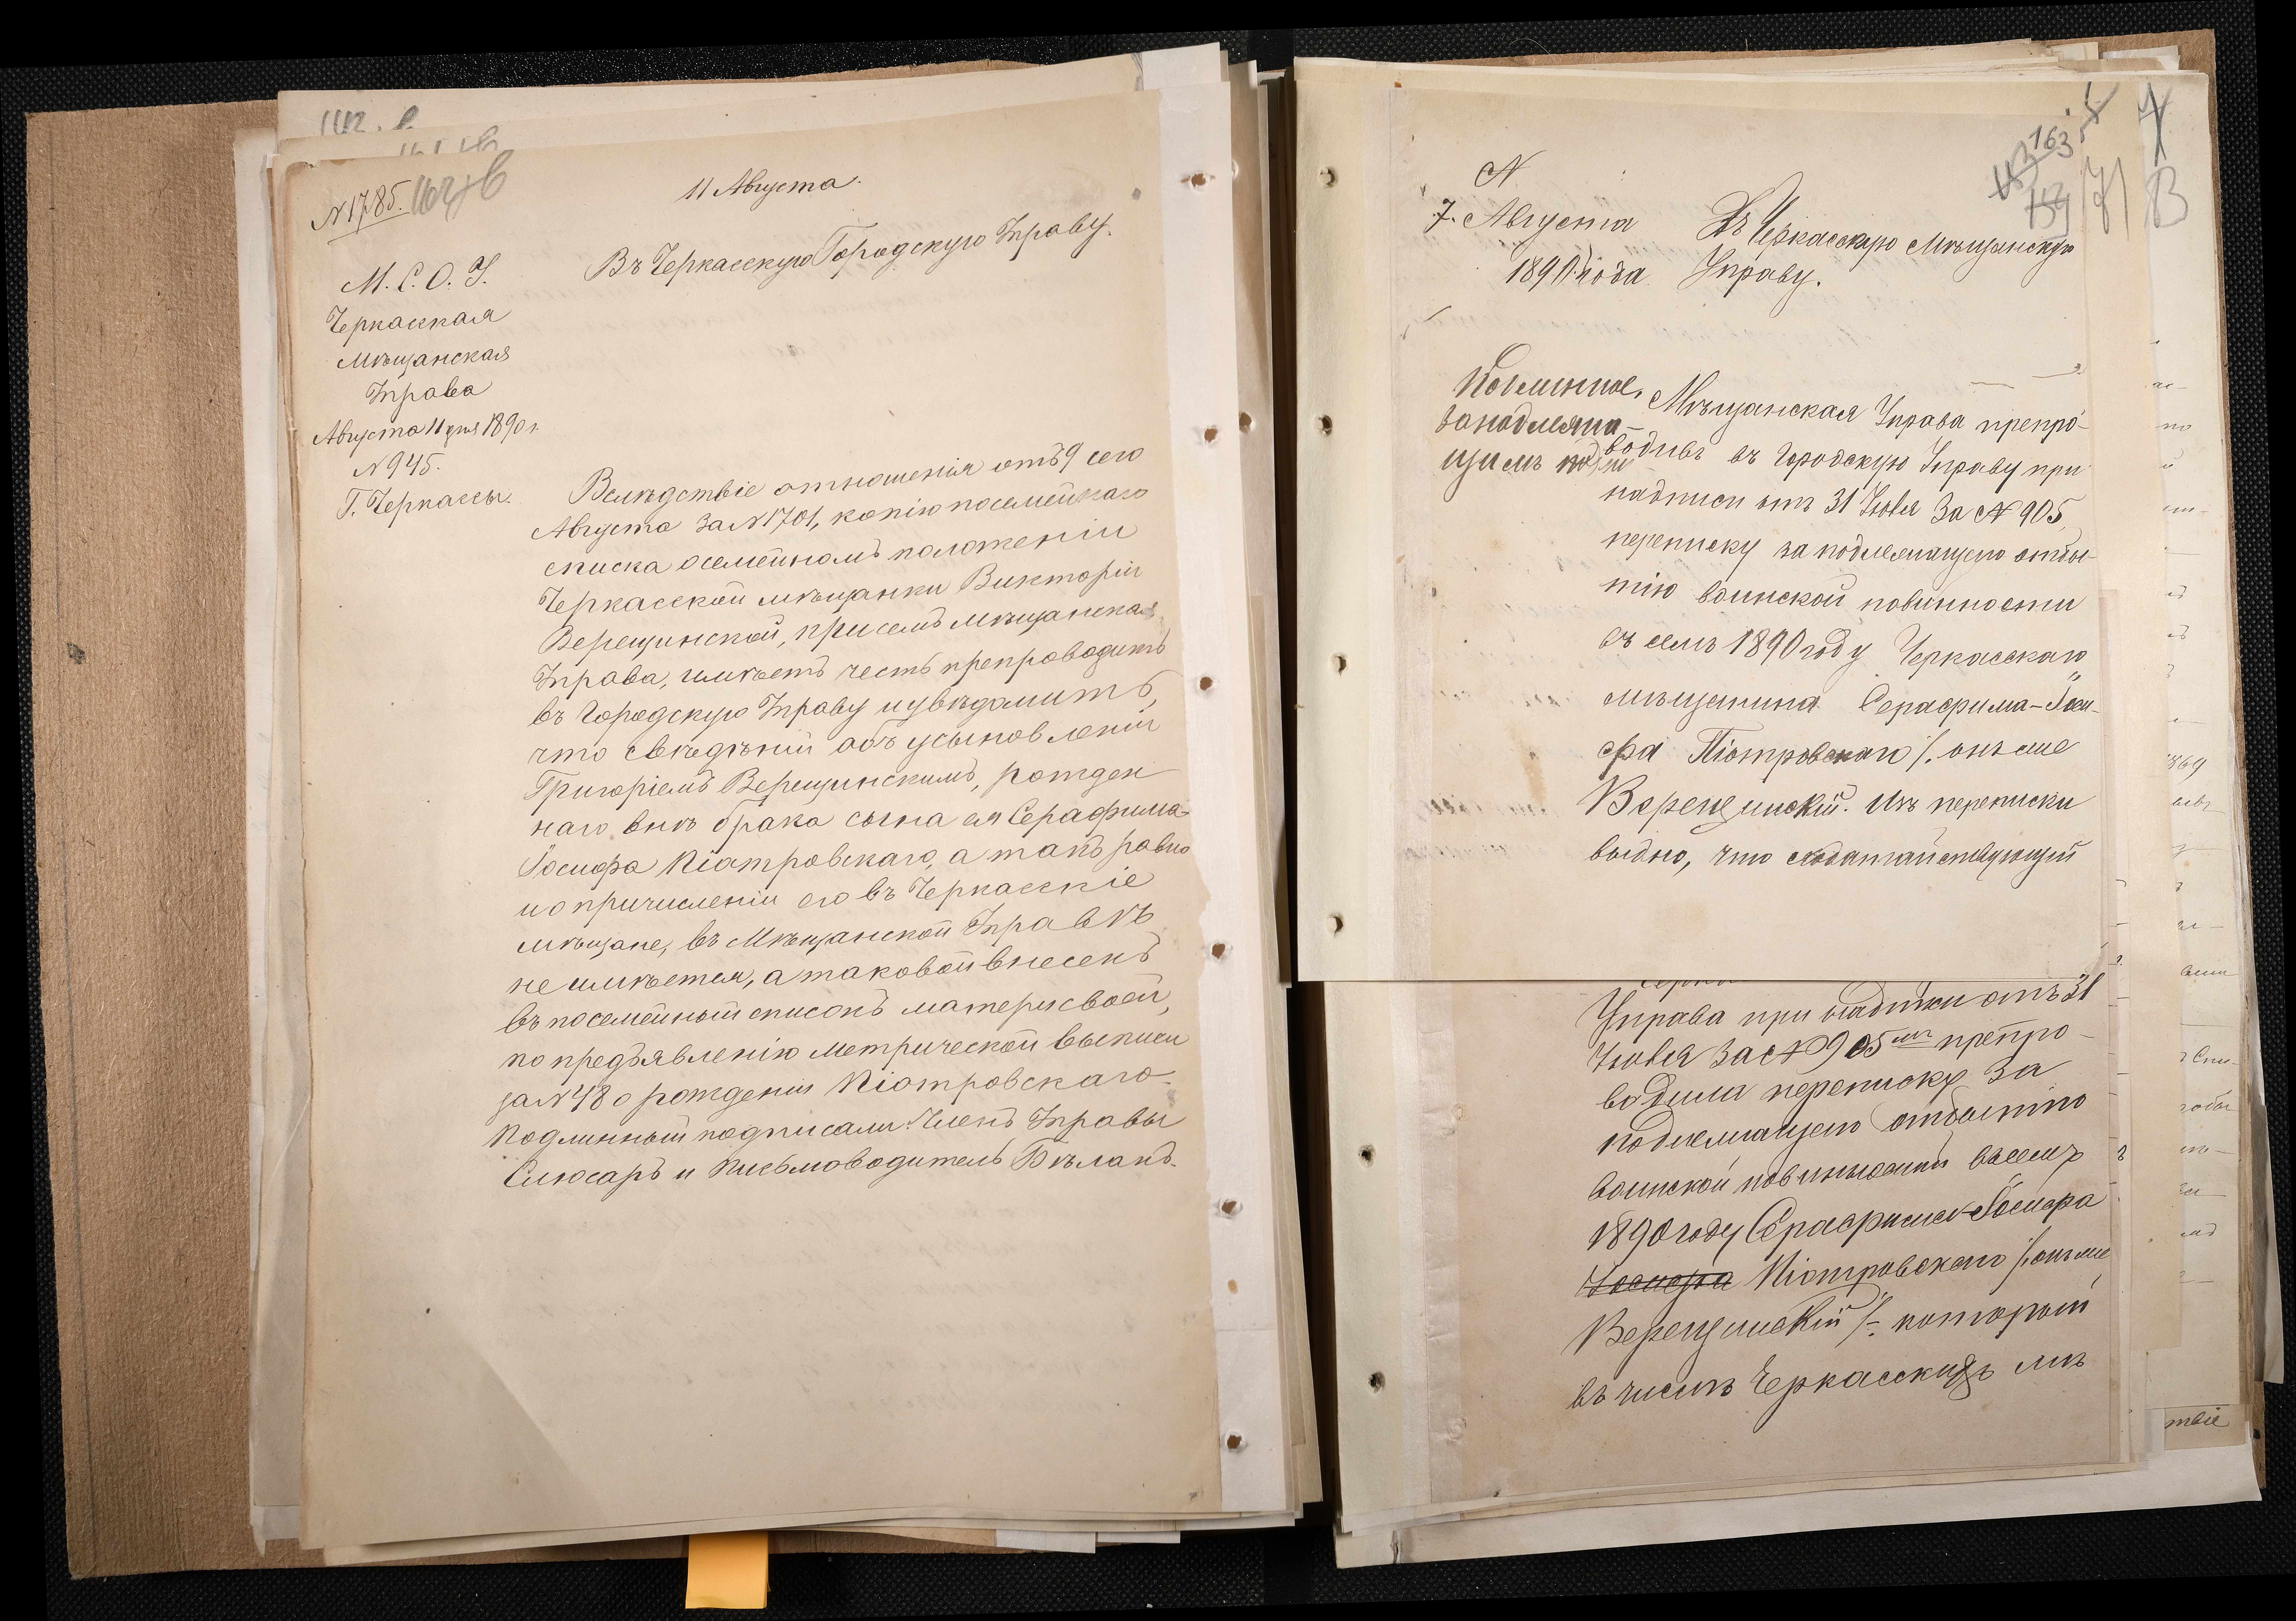 N 1785.
11 Августа.
Въ Черкасскую Городскую Управу.
М. С. О. У.
Черкасская
мѣщанская
Управа
Августа 11 дня 1890 г.
N 945.
Г. Черкассы.
Вслѣдствіе отношенія отъ 9 сего
Августа за N 1701, копію посемейнаго
списка о семейномъ положеніи
Черкасской мѣщанки Викторіи
Верещинской, при семъ мѣщанская
Управа, имѣетъ честь препроводить
въ Городскую Управу и увѣдомить,
что свѣдѣній объ усыновленіи
Григоріемъ Верещинскимъ, рожден
наго внѣ брака сына ея Серафима-
Іосифа Піотровскаго, а такъ равно
и о причисленіи его въ Черкасскіе
мѣщане, въ Мѣщанской Управѣ
не имѣется, а таковой внесенъ
въ посемейный списокъ матери своей,
по предъявленію метрической выписи
за N 48 о рожденіи Піотровскаго.
Подлинный подписали: Членъ Управы
Слюсарь и Письмоводитель Бѣланъ.
163
N
7. Августа
1890 года
Въ Черкасскую Мѣщанскую
Управу.
Мѣщанская Управа препро-
водивъ въ Городскую Управу при
надписи отъ 31 Іюля за N 905,
переписку за подлежащего отбы-
тію воинской повинности
въ семъ 1890 году Черкасскаго
мѣщанина Серафима-Іоси-
фа Піотровскаго /. онъ же
Верещинскій. Изъ переписки
видно, что ходатайствующій
Управа при надписи отъ 31
Іюля за N 905 препро-
водила переписку за
подлежащего отбытію
воинской повинности въ семъ
1890 году Серафима-Іосифа
Іосифа Піотровскаго /. онъ же
Верещинскій /. который
въ числѣ Черкасскихъ мѣ
твіе